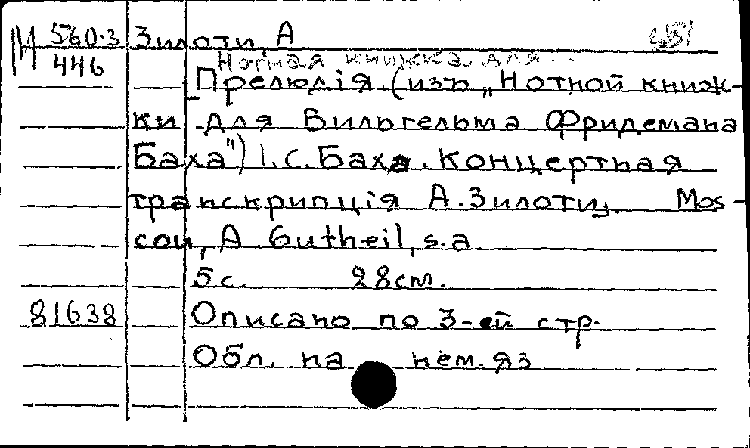 М 560-3 Зилоти, А
446 Нотная книжка для
Прелюдія (изъ „Нотной книж-
ки для Вильгельма Фридемана
Баха") І.С. Баха. Концертная
транскрипція А. Зилоти. Mos-
cou, A Gutheil, s.a.
5 с. 28см.
81638 Описано по 3-ей стр.
Обл. на нем. яз